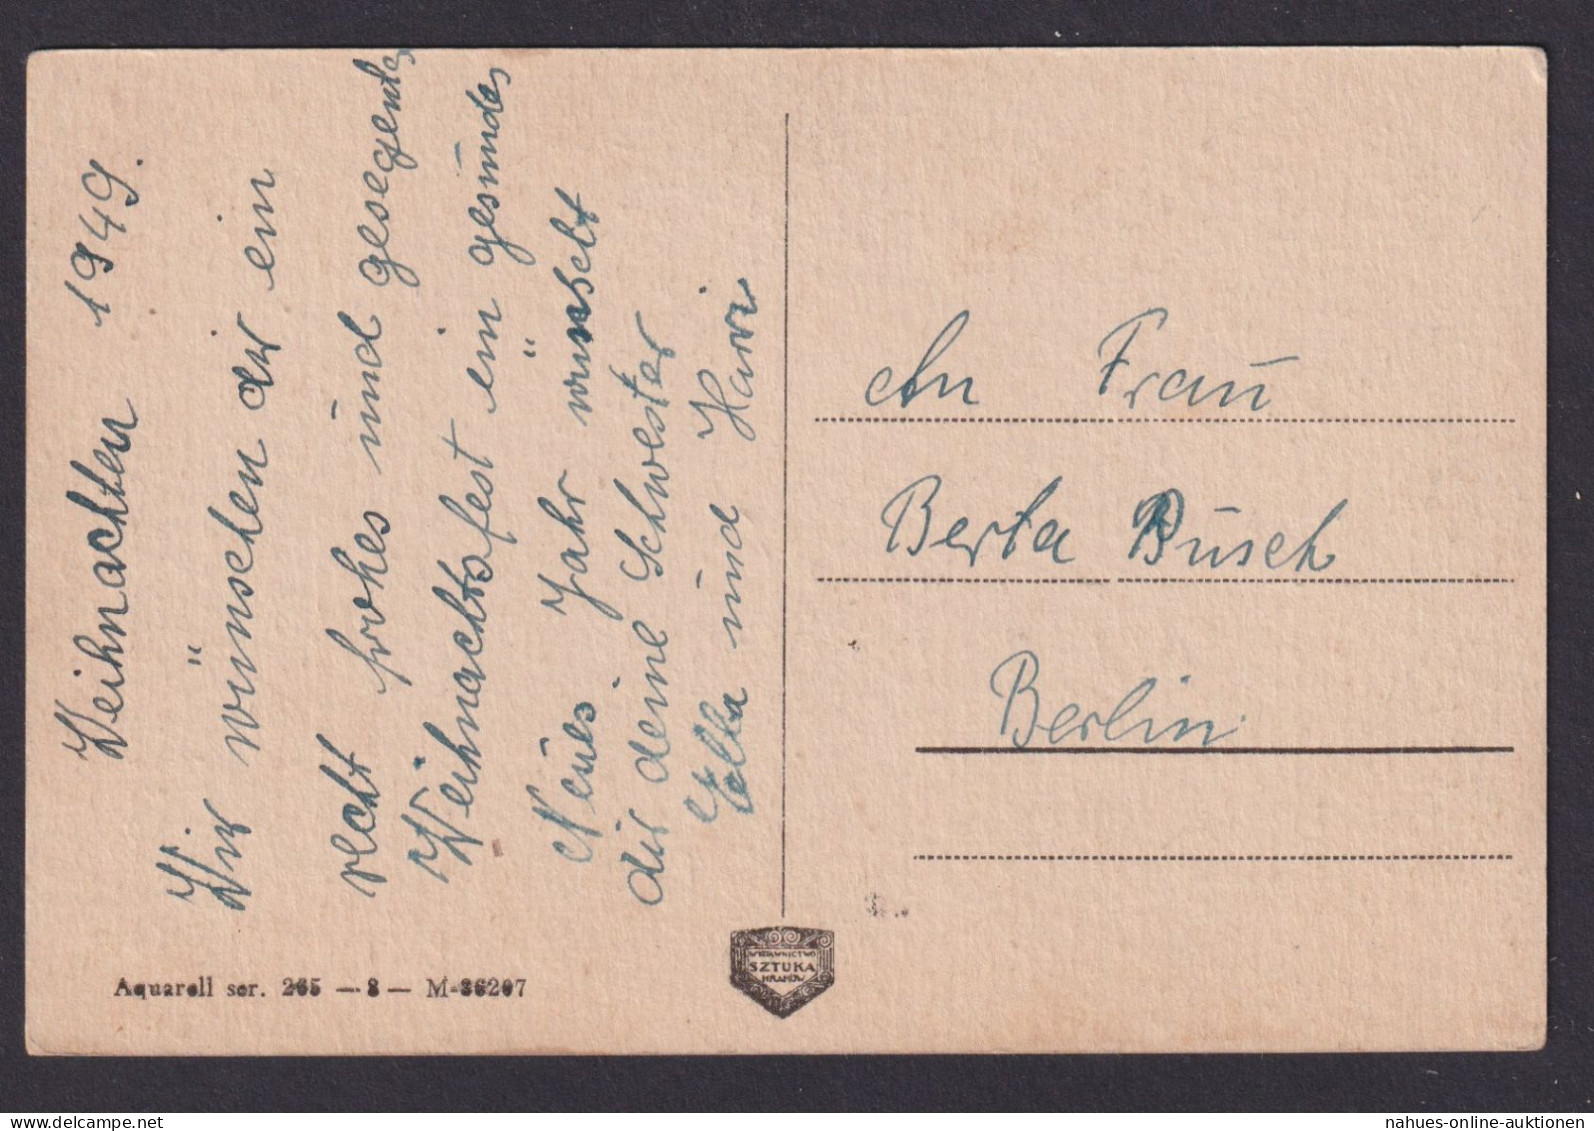 Weihnachten 1949.
Wir wünschen dir ein
recht frohes und gesegentes
Weihnachtsfest ein gesundes
Neues Jahr wünscht
dir deine Schwester
Ella und Harri
An Frau
Berta Busch
Berlin
WYDAWNICTWO
SZTUKA
KRAKÓW
Aquarell ser. 265 — 8 — M-36207
nahues-online-auktionen